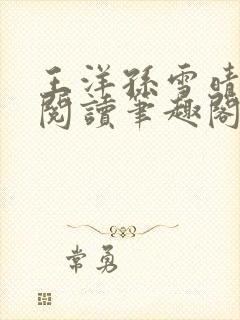 王洋孫雪晴
閱讀筆趣閣
常勇